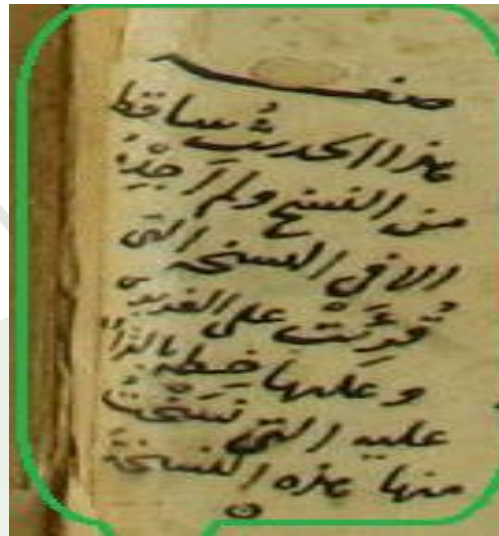 هذا الحديث ساقط
من النسخ ولم أجِدْهُ
الا في النسخة التي
قُرِئَت على الفربري
وعليها خطه
عليه التي نَسَخْتُ
منها هذه النسخة